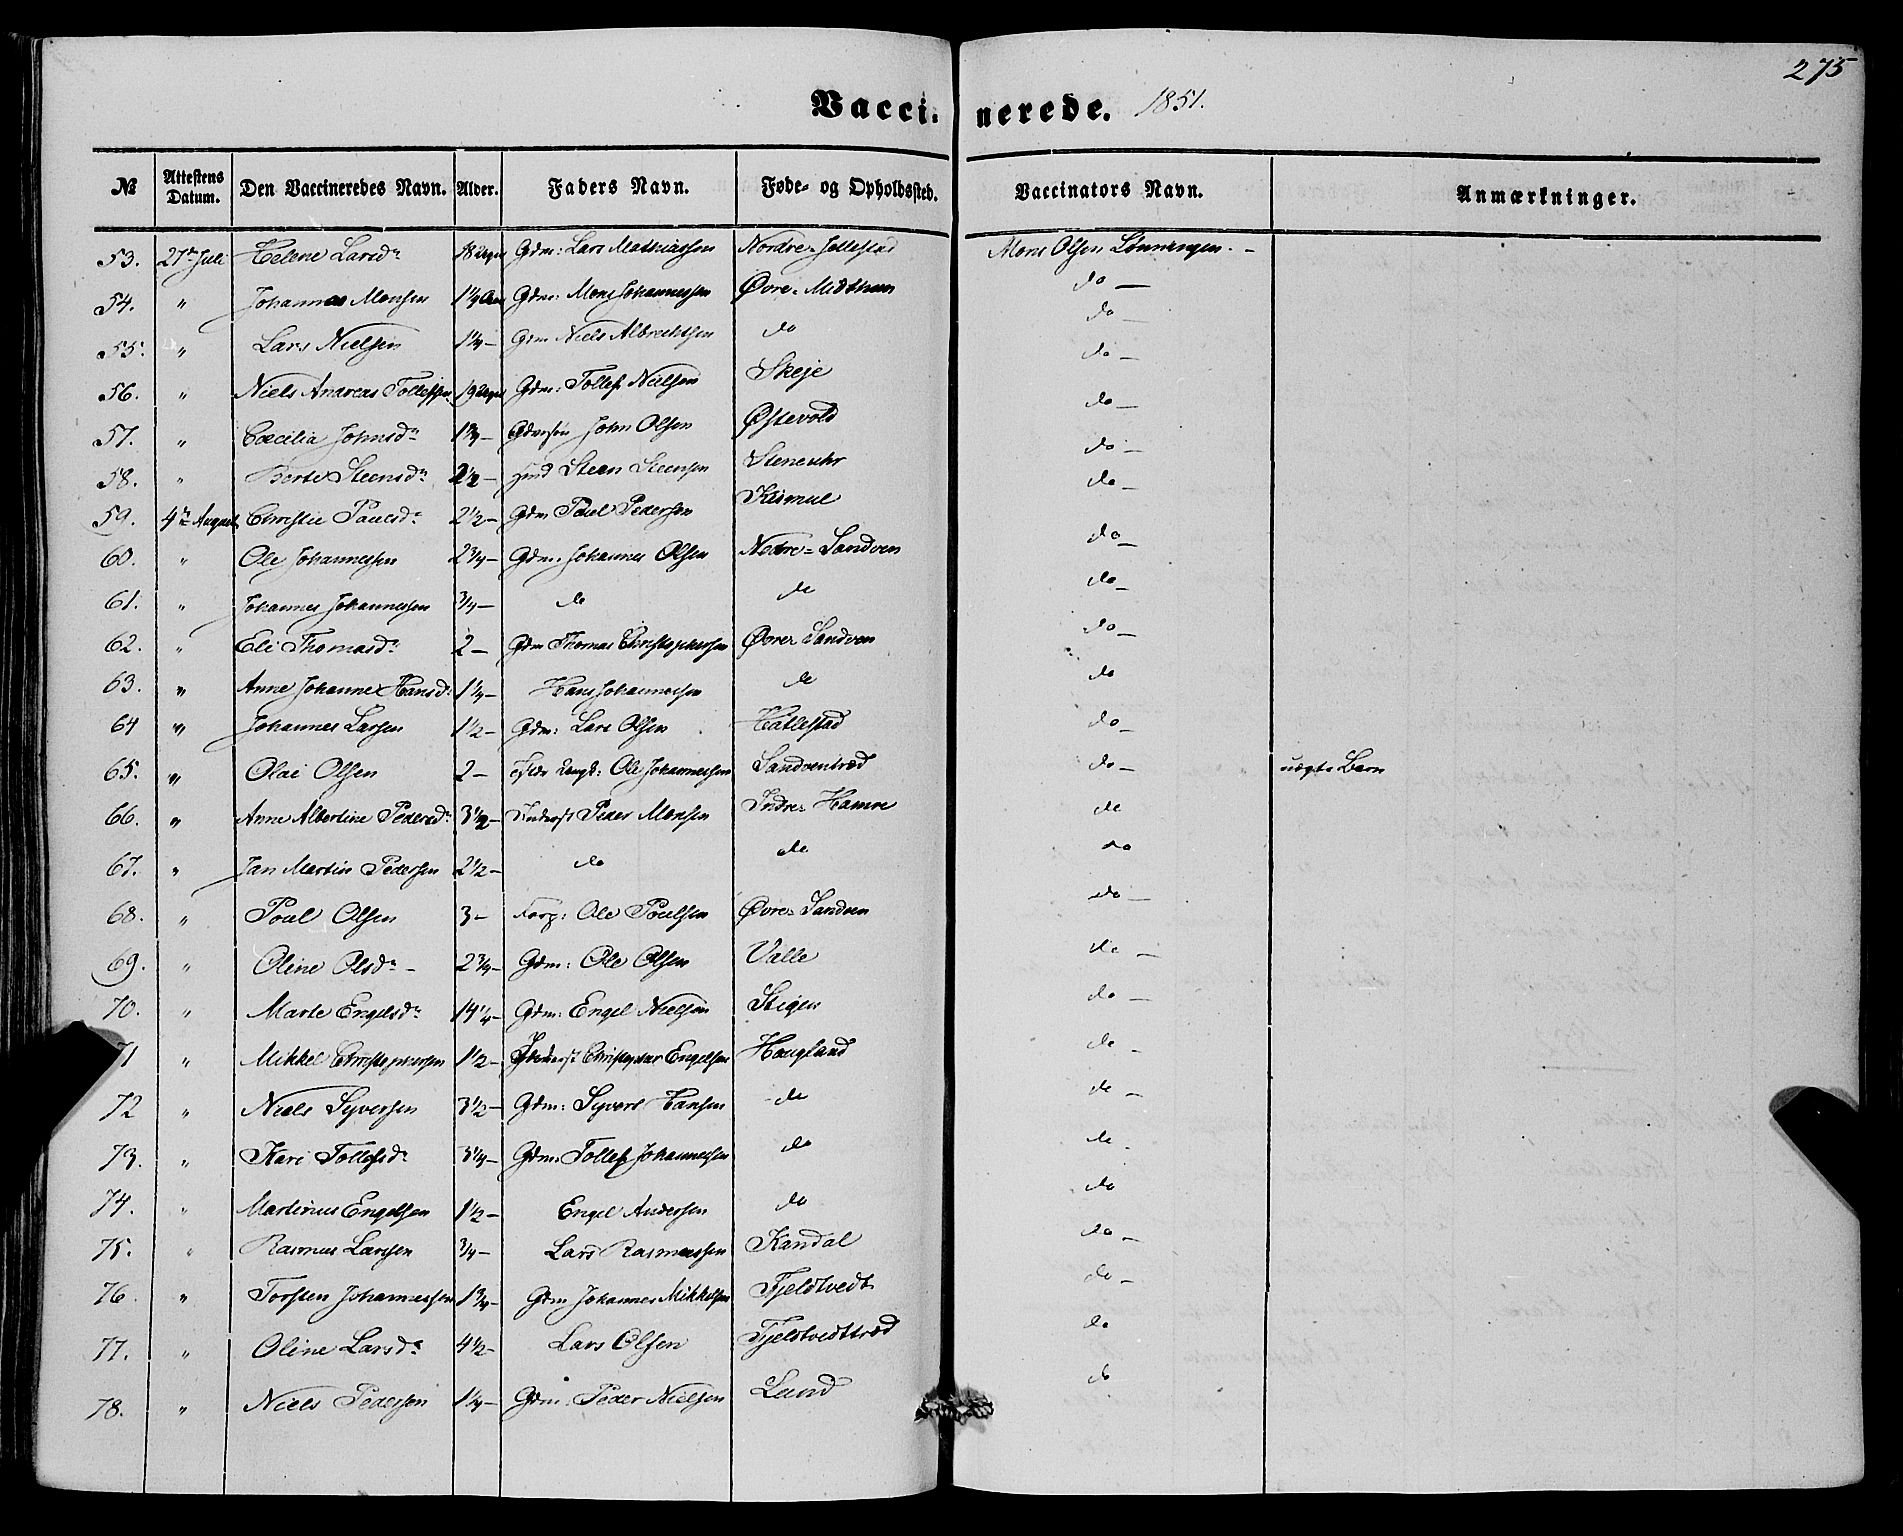 275
Vaccinerede. 1851.
№ Attestens Datum. Den Vaccineredes Navn. Alder. Faders Navn. Føde- og Opholdssted. Vaccinators Navn. Anmærkninger.
53. 27de Juli Helene Larsdr 18 Uger Gdm: Lars Mathiassen Nordre Mons Olsen Lønningen.
54. " Johannes Monsen 1¼ Aar Gdm: Mons Johannessen Øvre-Midthun do
55. " Lars Nielsen 1¼ Gdm Niels Albrechtsen do do
56. " Niels Andreas Tollefsen 19 Uger Gdm: Tollef Nielsen Skeje do
57. " Cæcilia Johnsdr 1¾ John Olsen Østevold do
58. " Berte Steensdr 2½ Steen Steensen do
59. 4de August Christie Paulsdr 2½ Gdm Paul Pedersen Kismul do
60. " Ole Johannessen 2¾ Gdm: Johannes Olsen Nedre-Sandven do
61. " Johannes Johannessen ¾ do do do
62. " Eli Thomasdr 2 Gdm Thomas Christophersen Øvre Sandven do
63. " Anne Johanne Hansdr 1¼ Hans Johannessen do do
64 " Johannes Larsen 1½ Gdm: Lars Olsen Hatlestad do
65. " Olai Olsen 2 Ole Johannessen Sandventræd do uægte Barn
66. " Anne Albertine Pedersdr 3½ Inderst Peder Monsen Indre-Hamre do
67. " Jan Martin Pedersen 2½ do do do
68. " Poul Olsen 3 Forp: Ole Poulsen Øvre-Sandven do
69. " Oline Olsdr 2¾ Gdm: Ole Olsen Valle do
70. " Marte Engelsdr 14¼ Gdm: Engel Nielsen Stigen do
71 " Mikkel Christophersen 1½ Inderst Christopher Engelsen Hougland do
72 " Niels Syversen 3½ Gdm: Syvert Hansen do do
73. " Kari Tollefsdr 3¼ Gdm: Tollef Johannessen do do
74. " Martinus Engelsen 1½ Engel Andersen do do
75. " Rasmus Larssen ¾ Lars Rasmussen Kandal do
76. " Torsten Johannessen 1¾ Gdm Johannes Mikkelsen Fjeldtvedt do
77. " Oline Larsdr 4½ Lars Olsen Fjeldtvedttræd do
78. " Niels Pedersen 1¼ Gdm. Peder Nielsen Lund do